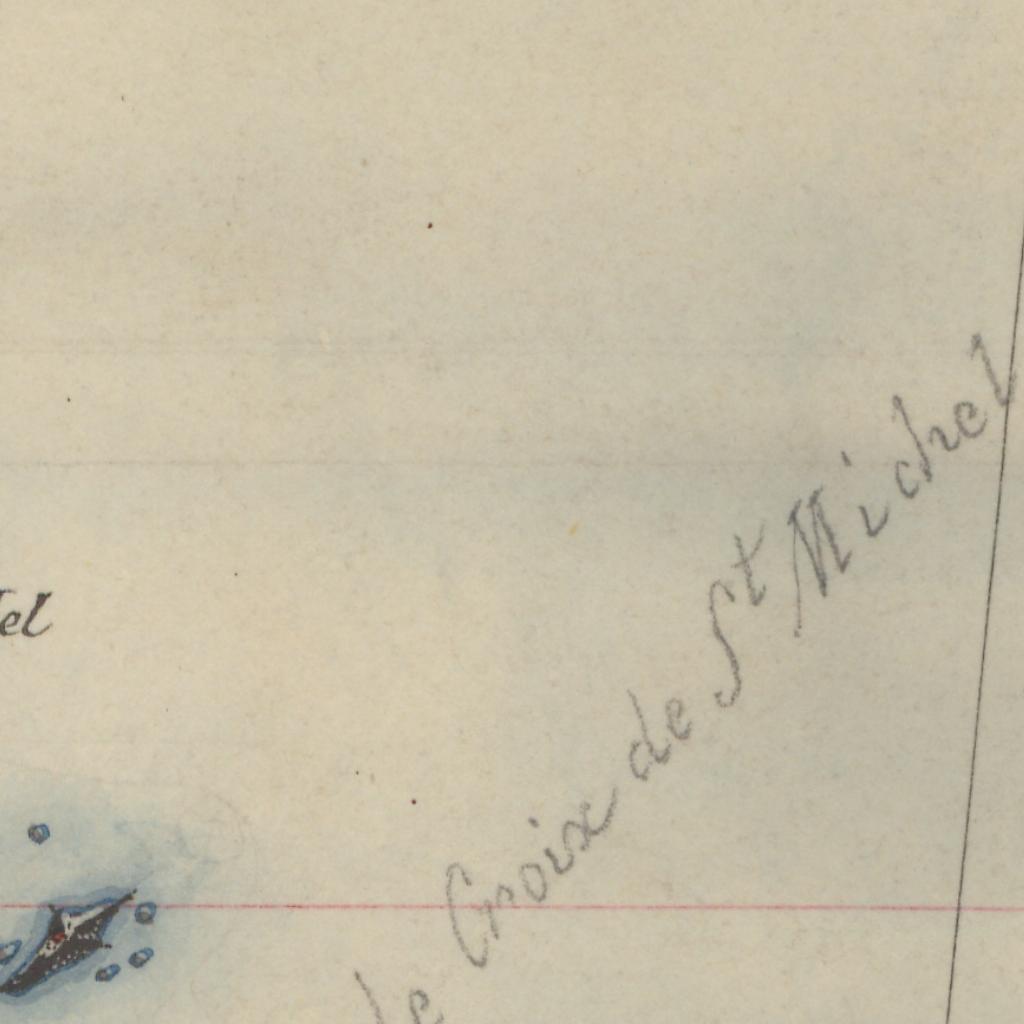 el
de Croix de St Michel